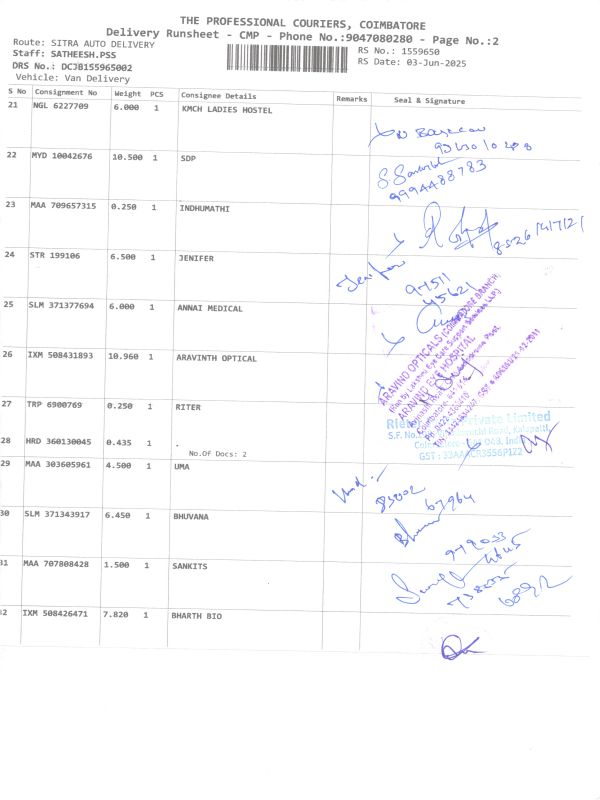 THE PROFESSIONAL COURIERS, COIMBATORE
Delivery Runsheet - CMP - Phone No.:9047080280 - Page No.:2
Route: SITRA AUTO DELIVERY
RS No.: 1559650
Staff: SATHEESH.PSS
RS Date: 03-Jun-2025
DRS No.: DCJB155965002
Vehicle: Van Delivery
S No Consignment No Weight PCS Consignee Details Remarks Seal & Signature
21 NGL 6227709 6.000 1 KMCH LADIES HOSTEL
22 MYD 10042676 10.500 1 SDP
9994488783
23 MAA 709657315 0.250 1 INDHUMATHI
24 STR 199106 6.500 1 JENIFER
Jenifer
25 SLM 371377694 6.000 1 ANNAI MEDICAL
26 IXM 508431893 10.960 1 ARAVINTH OPTICAL
ARAVIND OPTICALS (COIMBATORE BRANCH,
ARAVIND EYE HOSPITAL
27 TRP 6900769 0.250 1 RITER
Private Limited
S.F. No.
28 HRD 360130045 0.435 1 .
No.Of Docs: 2
GST : 33AAACR3556P1Z2
29 MAA 303605961 4.500 1 UMA
30 SLM 371343917 6.450 1 BHUVANA
31 MAA 707808428 1.500 1 SANKITS
32 IXM 508426471 7.820 1 BHARTH BIO